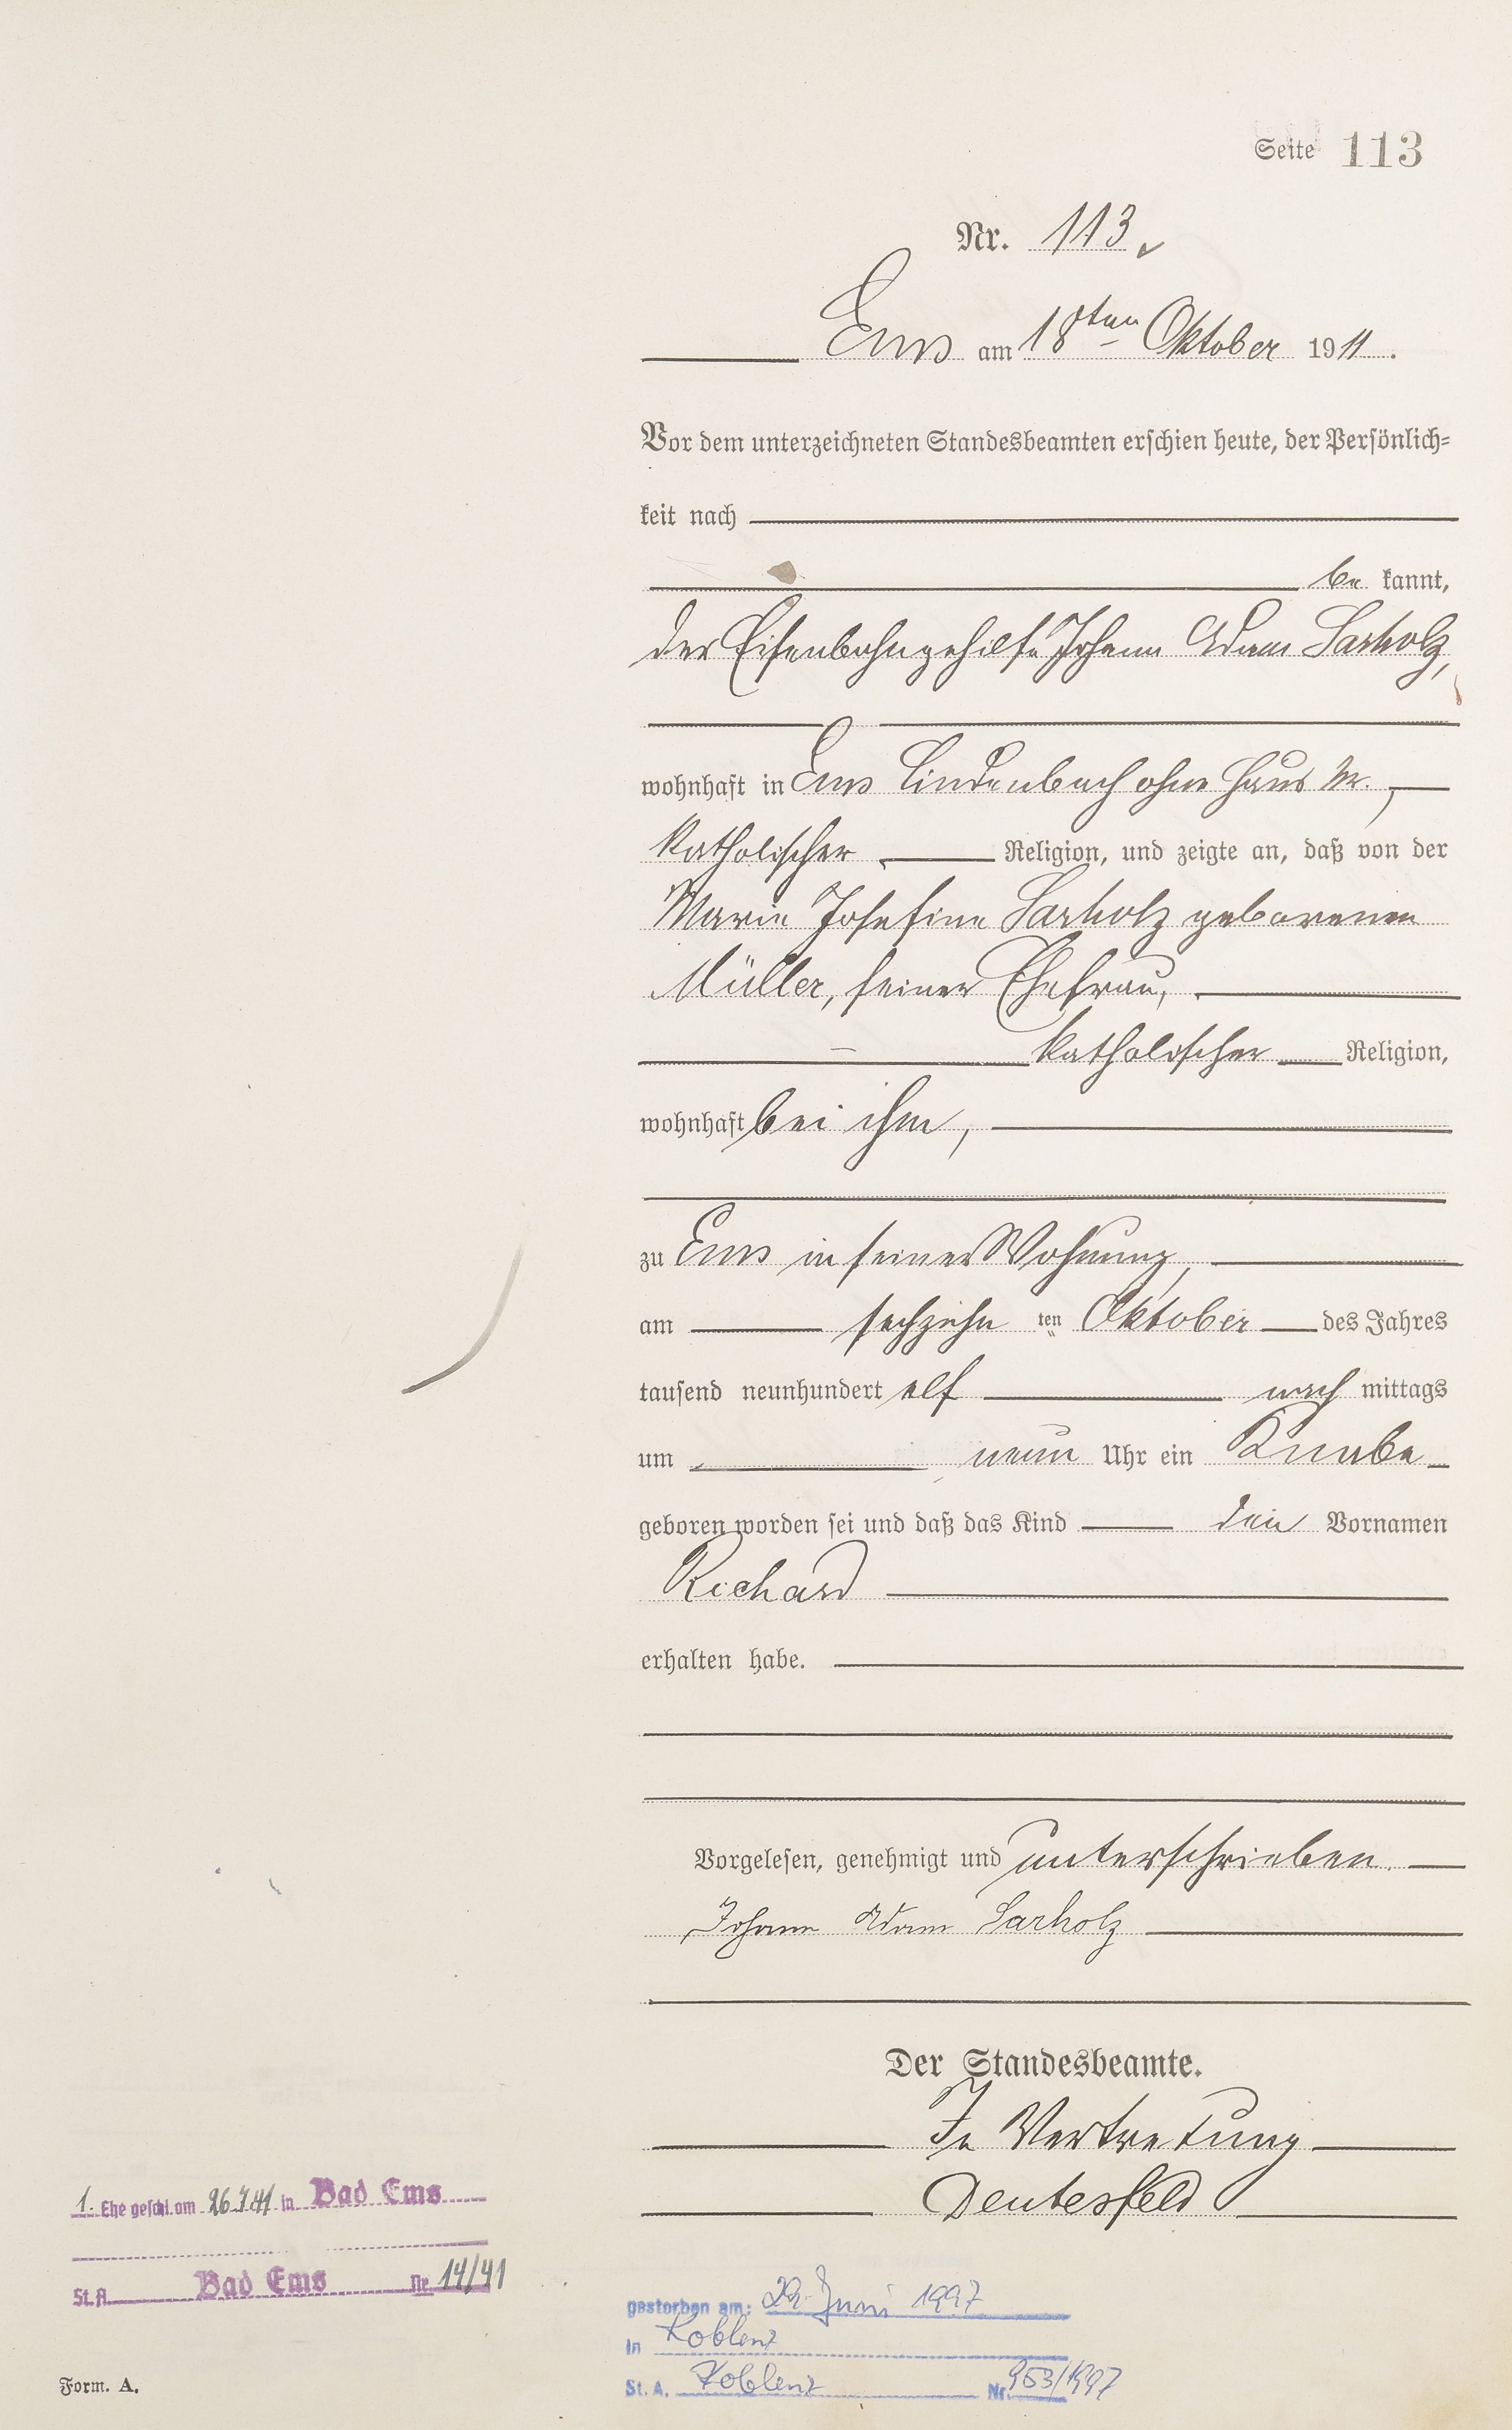 Seite 113
Nr. 113.
Ems am 18ten Oktober 1911.
Vor dem unterzeichneten Standesbeamten erschien heute, der Persönlich-
keit nach
be kannt,
der Eisenbahngehilfe Johann Adam Sarholz,
wohnhaft in Ems Lindenbach ohne Haus Nr.,
katholischer Religion, und zeigte an, daß von der
Marie Josefine Sarholz geborenen
Müller, seiner Ehefrau,
katholischer Religion,
wohnhaft bei ihm,
zu Ems in seiner Wohnung,
am sechzehn ten Oktober des Jahres
tausend neunhundert elf nach mittags
um neun Uhr ein Knabe
geboren worden sei und daß das Kind den Vornamen
Richard
erhalten habe.
Vorgelesen, genehmigt und unterschrieben.
Johann Adam Sarholz
Der Standesbeamte.
In Vertretung
Deutesfeld
1. Ehe geschl. am 26.7.41 in Bad Ems
St. A. Bad Ems Nr. 14/41
gestorben am: 29. Juni 1997
in Koblenz
St. A. Koblenz Nr. 953/1997
Form. A.